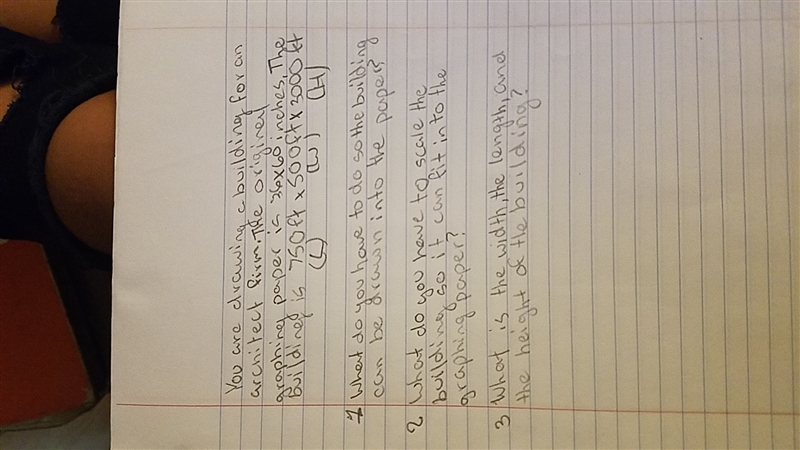 You are drawing a building for an
architect firm. The originey
graphing paper is 36x60 inches. The
building is 750ft x 500ft x 3000ft
(L) (W) (H)
1 What do you have to do so the building
can be drawn into the paper?
2 What do you have to scale the
building so it can fit into the
graphing paper?
3 What is the width, the length, and
the height of the building?